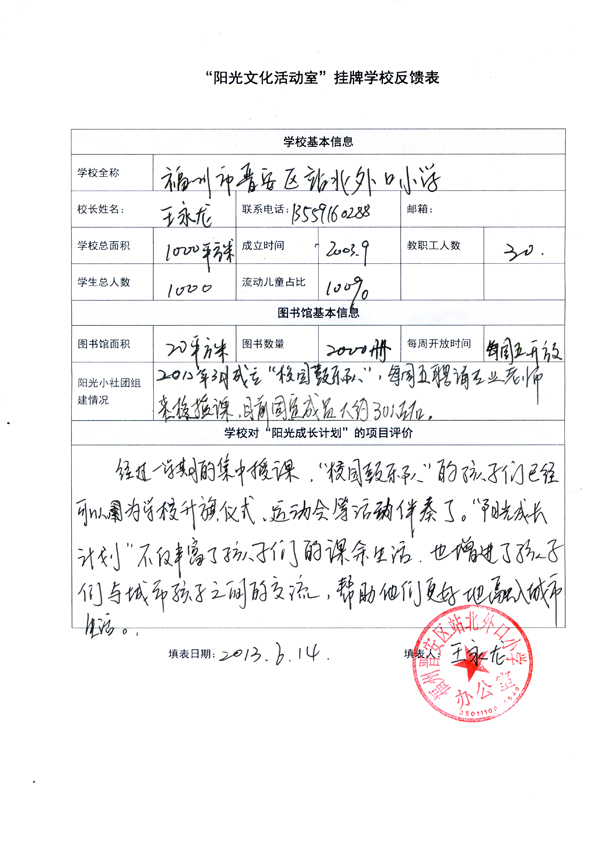 “阳光文化活动室”挂牌学校反馈表
学校基本信息
学校全称 福州市晋安区站北外口小学
校长姓名： 王永龙 联系电话： 13559160288 邮箱：
学校总面积 1000平方米 成立时间 2003.9 教职工人数 30.
学生总人数 1000 流动儿童占比 100%
图书馆基本信息
图书馆面积 20平方米 图书数量 2000册 每周开放时间 每周五开放
阳光小社团组 2012年3月成立“校园鼓乐队”，每周五聘请专业老师
建情况 来校授课，目前固定成员大约30人左右。
学校对“阳光成长计划”的项目评价
经过一学期的集中授课，“校园鼓乐队”的孩子们已经
可以为学校升旗仪式、运动会等活动伴奏了。“阳光成长
计划”不仅丰富了孩子们的课余生活，也增进了孩子
们与城市孩子之间的交流，帮助他们更好地融入城市
生活。
填表日期：2013.6.14. 填表人：王永龙
福州晋安区站北外口小学
办公室